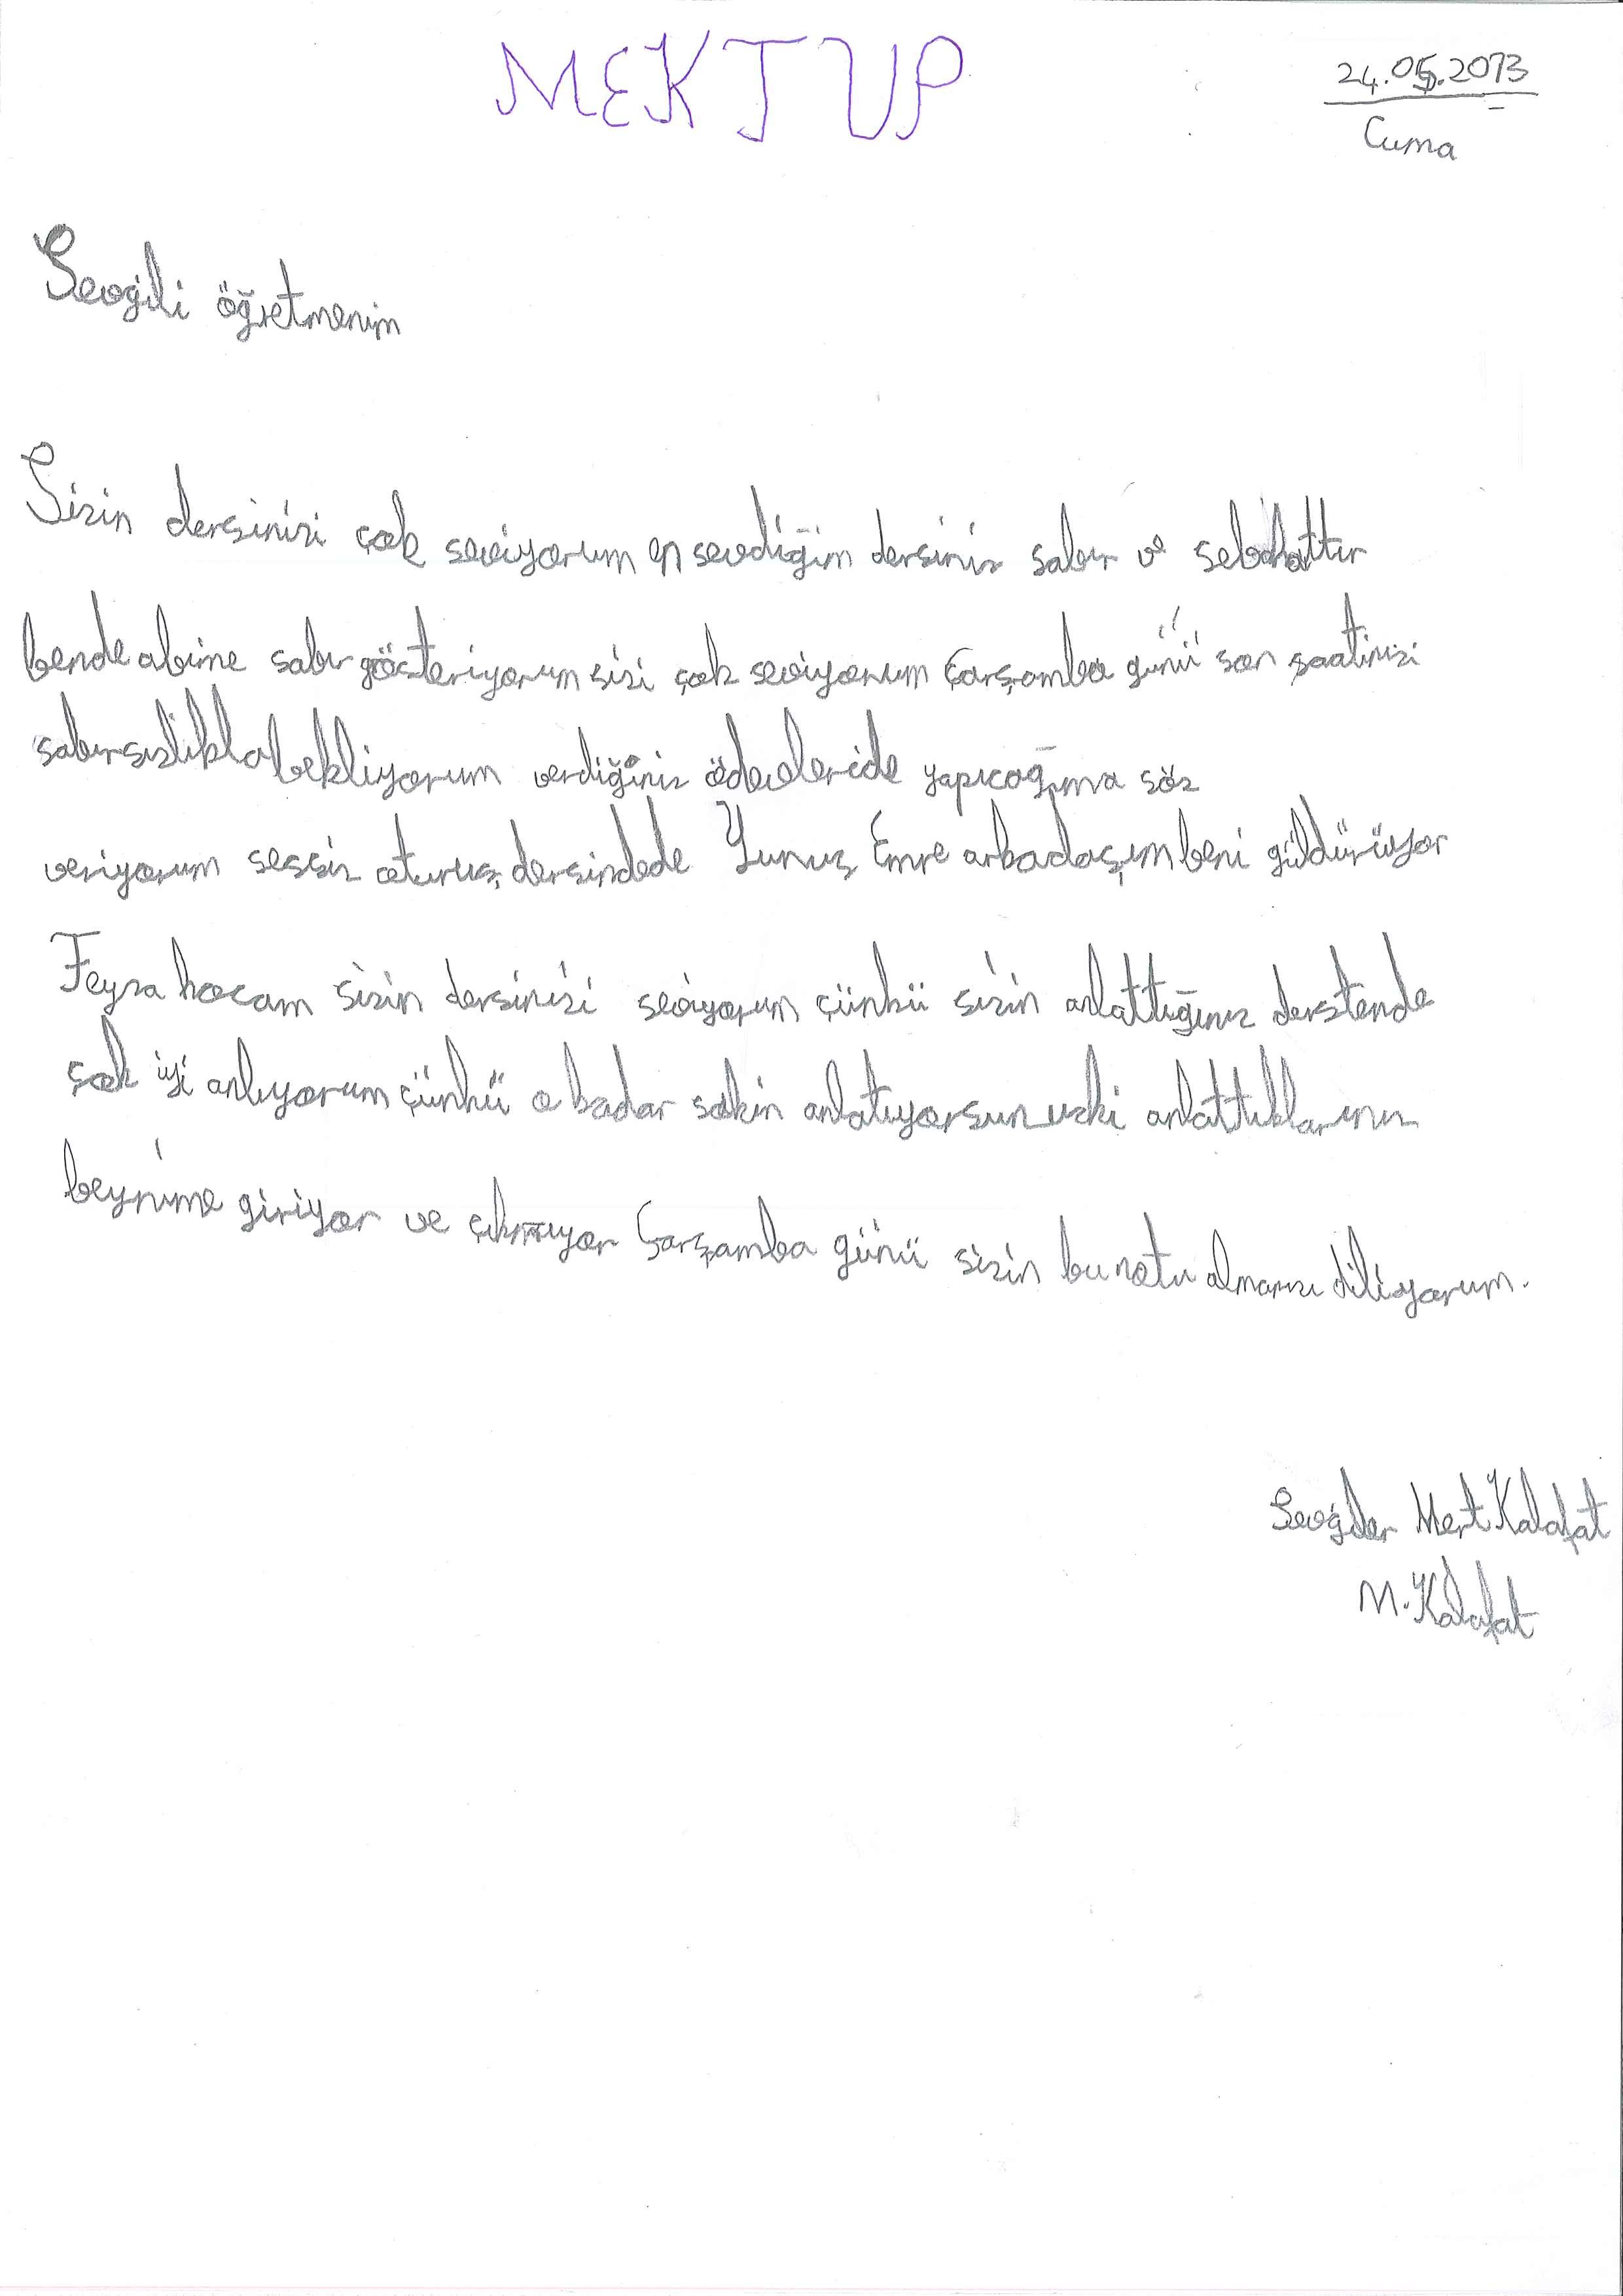 MEKTUP
24.05.2013
Cuma
Sevgili öğretmenim
Sizin dersinizi çok seviyorum en sevdiğim dersiniz sabır ve sebahattır
bende abime sabır gösteriyorum sizi çok seviyorum Çarşamba günü son saatinizi
sabırsızlıkla bekliyorum verdiğiniz ödevleride yapıcağıma söz
veriyorum sessiz oturuş dersindede Yunus Emre arkadaşım beni güldürüyor
Feyza hocam sizin dersinizi seviyorum çünkü sizin anlattığınız derstende
çok iyi anlıyorum çünkü o kadar sakin anlatıyorsunuzki anlattıklarınız
beynime giriyor ve çıkmıyor Çarşamba günü sizin bu notu almanızı diliyorum.
Sevgiler Mert Kalafat
M. Kalafat